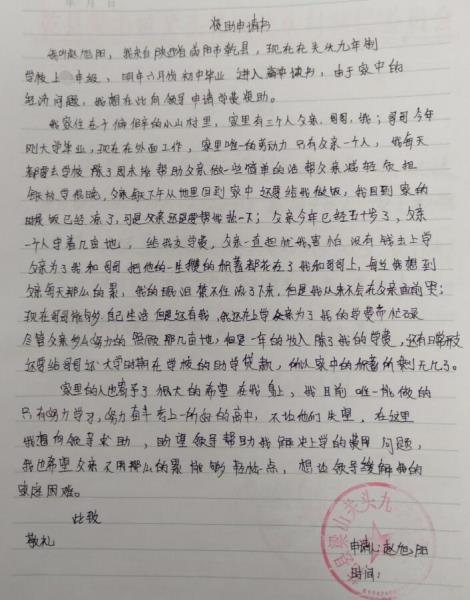 援助申请书
我叫赵旭阳，我来自陕西省咸阳市乾县，现在在关头九年制
学校上 年级，明年六月份初中毕业 进入高中读书，由于家中的
经济问题，我想在此向领导申请学费援助。
我家住在于偏僻的小山村里，家里有三个人父亲，哥哥，我；哥哥今年
刚大学毕业，现在在外面工作，家里唯一的劳动力只有父亲一个人，我每天
都要去学校 除了周末给帮助父亲做一些简单的活帮父亲减轻负担
每放学很晚，父亲每下午从地里回到家中还要给我做饭，我回到家的
时候饭已经凉了，可是父亲还是要帮我热一下；父亲今年已经五十岁了，父亲
一个人守着几亩地， 给我交学费，父亲一直担忧我害怕没有钱去上学
父亲为了我和哥哥把他的一生的积蓄都花在了我和哥哥上，每当我想到
父亲每天那么的累，我的眼泪禁不住流了下来，但是我从来不会在父亲面前哭；
现在哥哥能够 自己生活但是还有我，我还在上学父亲为了我的学费而忙碌
尽管父亲多么努力的照顾那几亩地，但是一年的收入除了我的学费，还有日常
还要给哥哥还大学时期在学校的助学贷款，所以家中的积蓄所剩无几了。
家里的人也寄予了很大的希望在我身上，我目前唯一能做的
只有努力学习，努力奋斗考上一所好的高中，不让他们失望，在这里
我想向领导求助，盼望领导帮助我解决上学的费用问题，
我也希望父亲不用那么的累能够轻松点，想让领导缓解我的
家庭困难。
此致
敬礼
申请人：赵旭阳
时间：
县梁山关头九